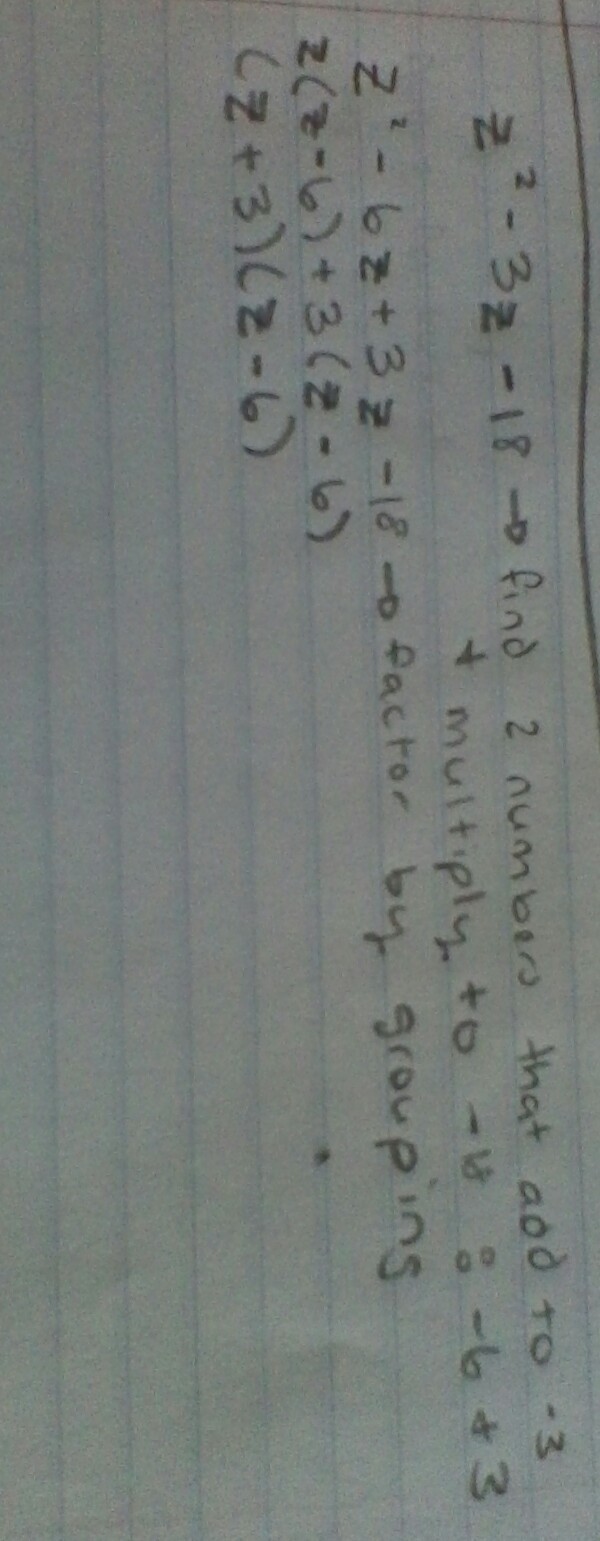 z² - 3z - 18 → find 2 numbers that add to -3
+ multiply to -18 : -6 + 3
z² - 6z + 3z - 18 → factor by grouping
z(z - 6) + 3(z - 6)
(z + 3)(z - 6)